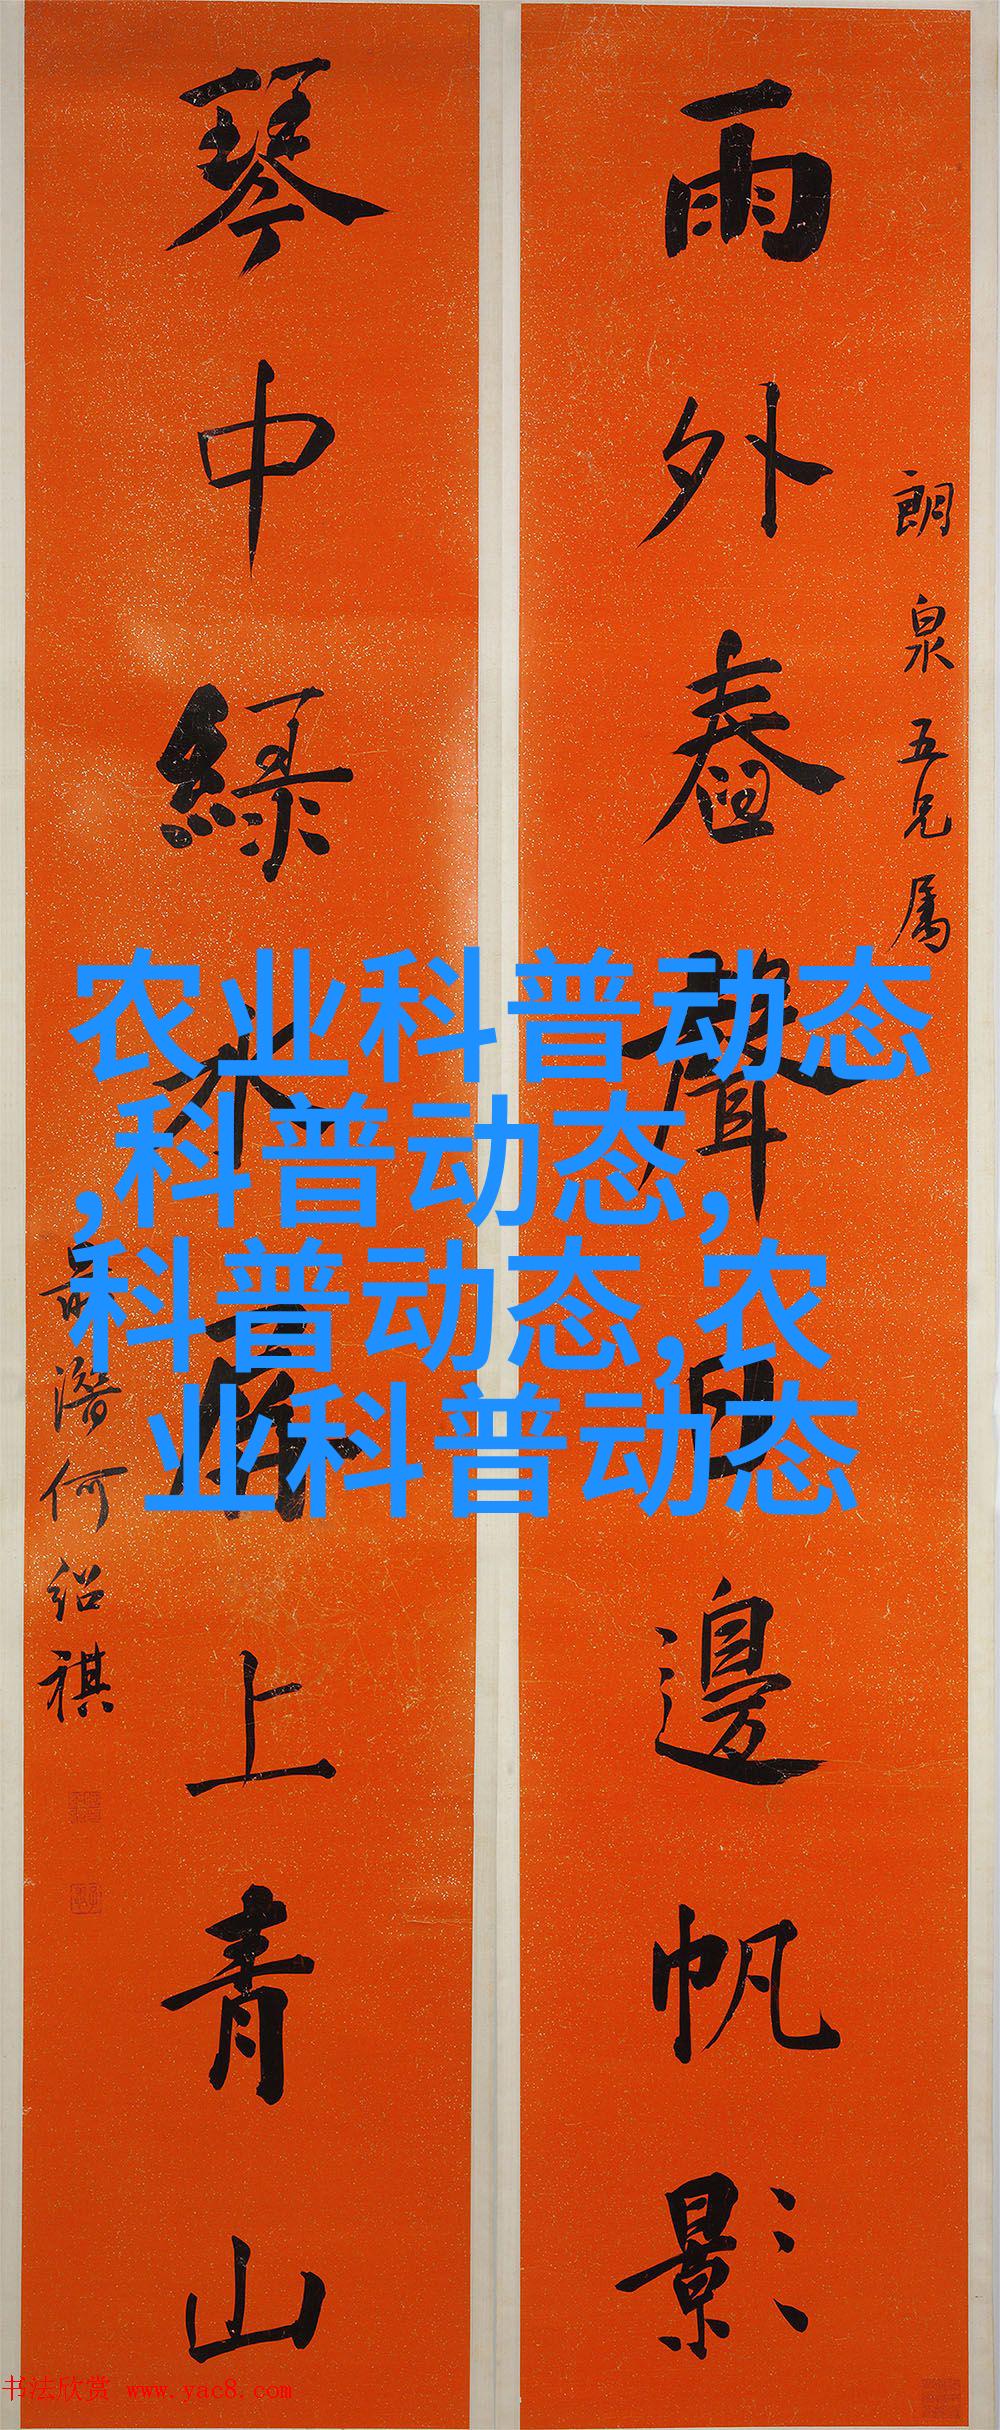 朗泉五兄属
雨外舂聲日邊帆影
琴中綠水屏上青山
潛何紹祺
农业科普动态
,科普动态,
科普动态,农
业科普动态
书法欣赏 www.yac8.com